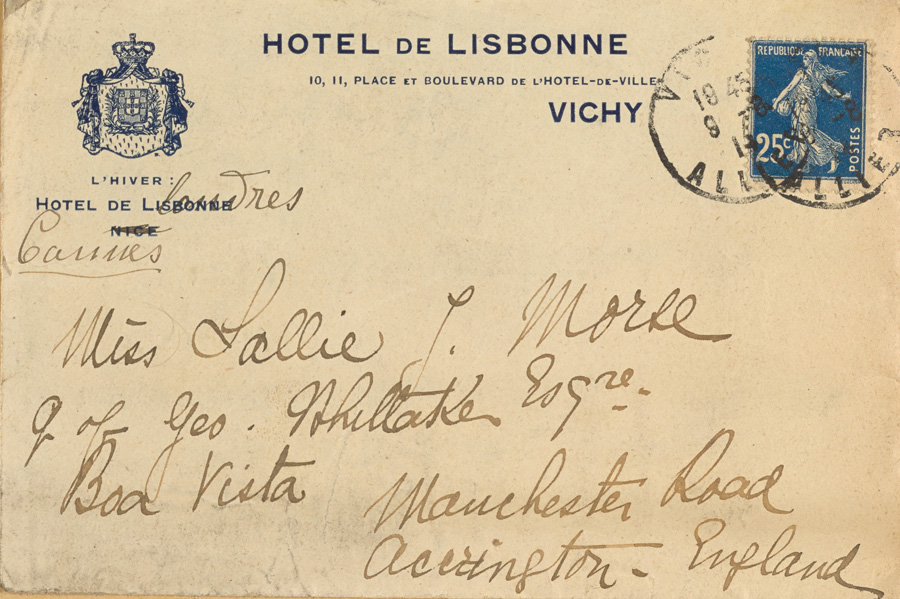 HOTEL DE LISBONNE
10, 11, PLACE ET BOULEVARD DE L'HOTEL-DE-VILLE
VICHY
REPUBLIQUE FRANÇAISE
25c
POSTES
19 45
ALLIER
L'HIVER :
HOTEL DE LISBONNE
Londres
NICE
Cannes
Miss Sallie J. Morse
℅ of Geo. Whittaker Esqre.
Boa Vista
Manchester Road
Accrington - England